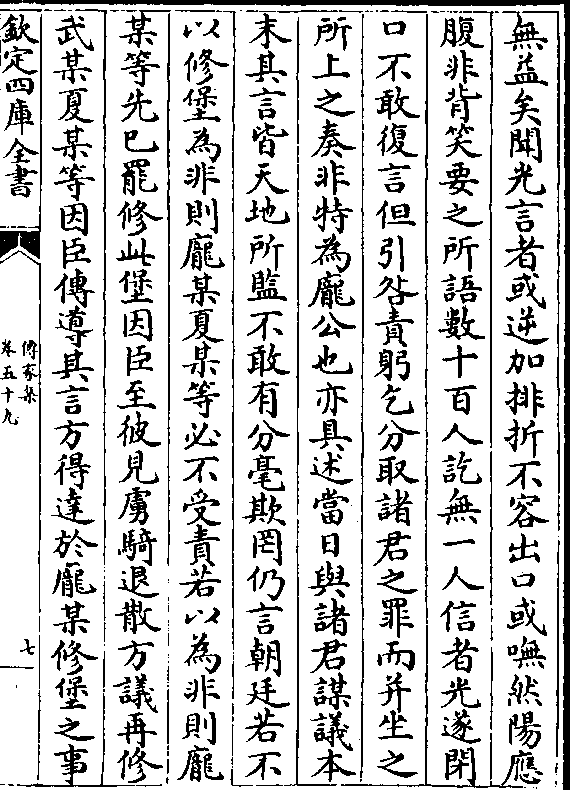 無益矣聞光言者或逆加排折不容出口或嘸然陽應
腹非背笑要之所語數十百人訖無一人信者光遂閉
口不敢復言但引咎責躬乞分取諸君之罪而并坐之
所上之奏非特為龐公也亦具述當日與諸君謀議本
末其言皆天地所監不敢有分毫欺罔仍言朝廷若不
以修堡為非則龐某夏某等必不受責若以為非則龐
某等先已罷修此堡因臣至彼見虜騎退散方議再修
武某夏某等因臣傳導其言方得達於龐某修堡之事
欽定四庫全書
傳家集
卷五十九
七